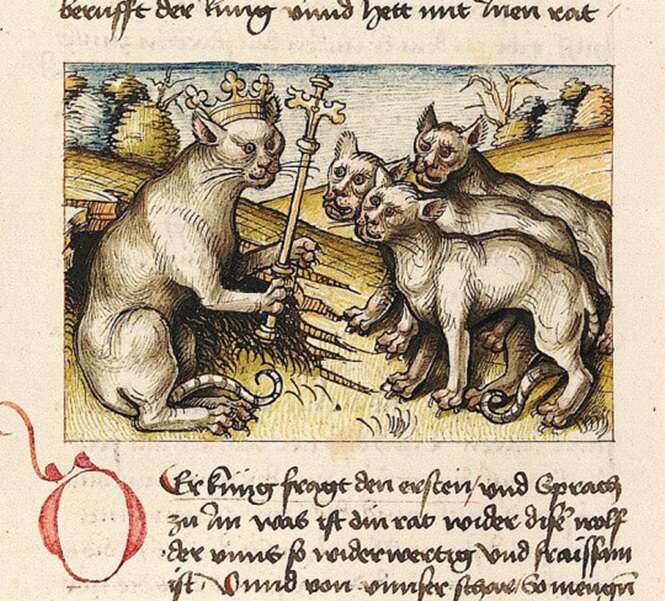 berufft der kung vnnd hett mit Jnen rat /
DEr kung fragt den ersten / vnd Sprach
zu Jm was ist din rat wider dise wolf
der vnns so widerwertig vnd fraissam
ist / Vnnd von vnnser schar / So mengn